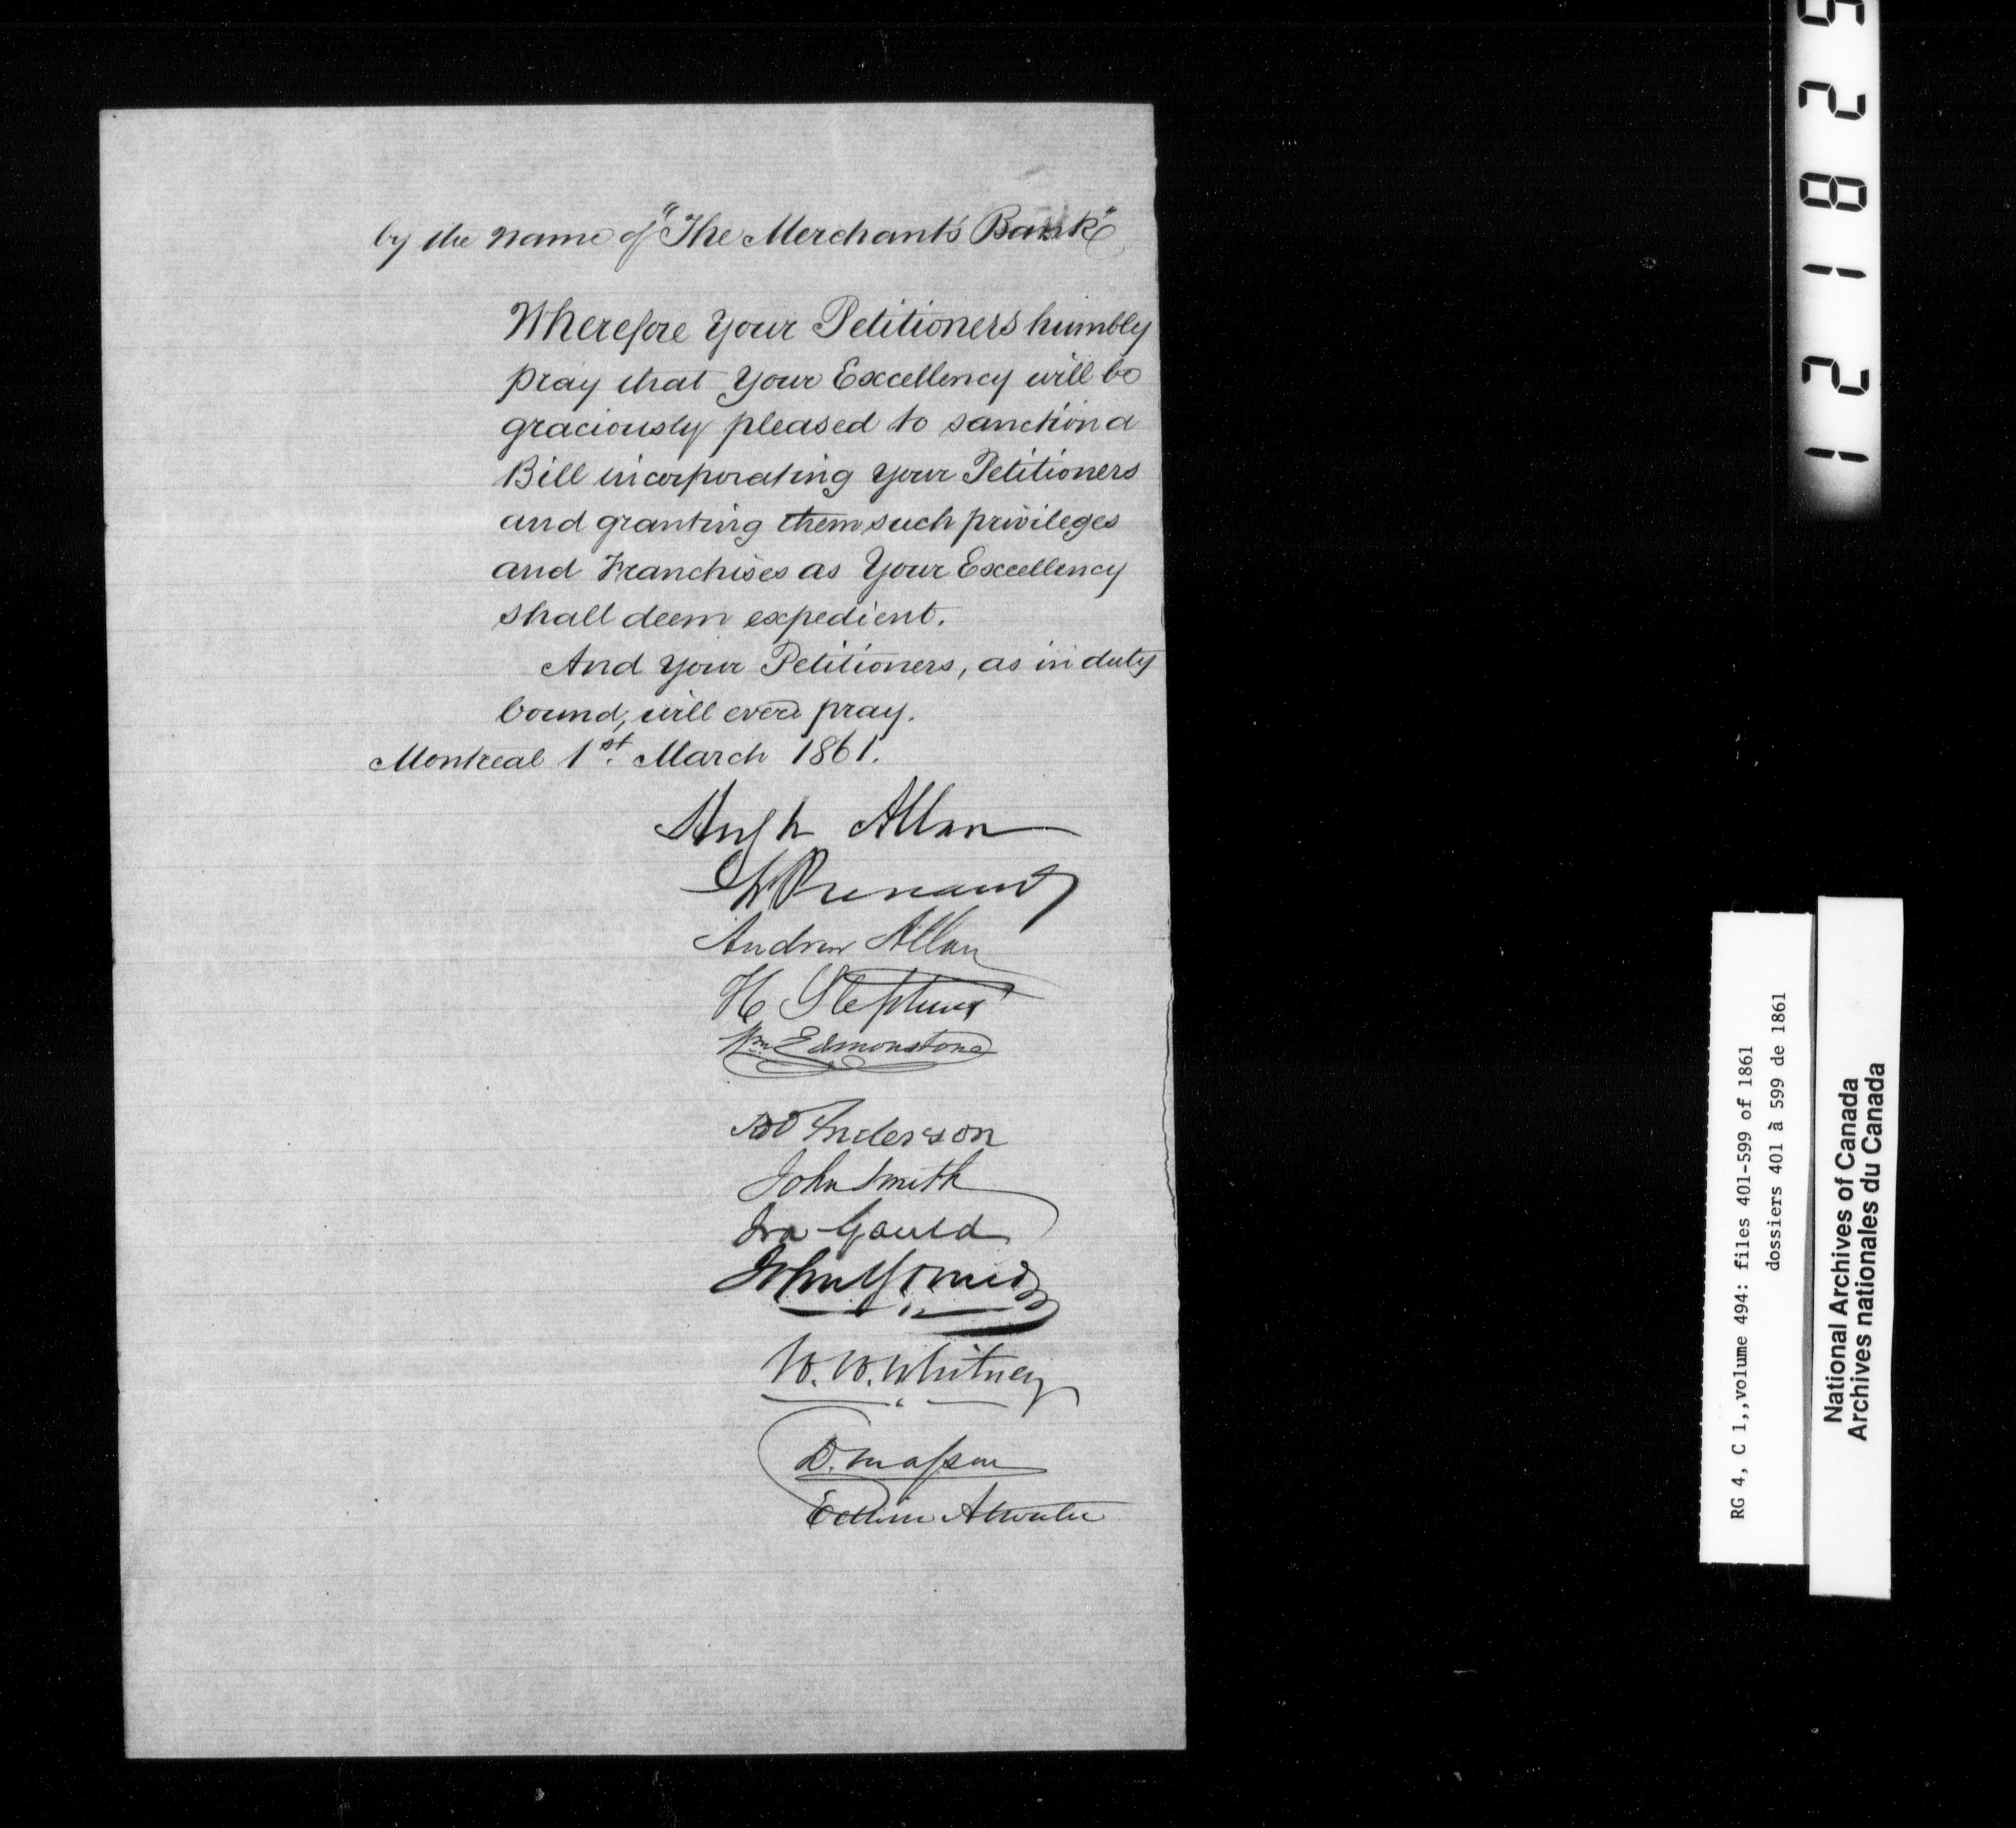 by the name of "The Merchants Bank"
Wherefore Your Petitioners humbly
pray that Your Excellency will be
graciously pleased to sanction a
Bill incorporating Your Petitioners
and granting them such privileges
and Franchises as Your Excellency
shall deem expedient.
And Your Petitioners, as in duty
bound, will ever pray.
Montreal 1st. March 1861.
Hugh Allan
Andrew Allan
H Stephens
Wm Edmonstone
Anderson
John Smith
Ira Gould
John
W. W. Whitney
D. Masson
Edwin Atwater
12182
RG 4, C 1,,volume 494: files 401-599 of 1861
dossiers 401 à 599 de 1861
National Archives of Canada
Archives nationales du Canada